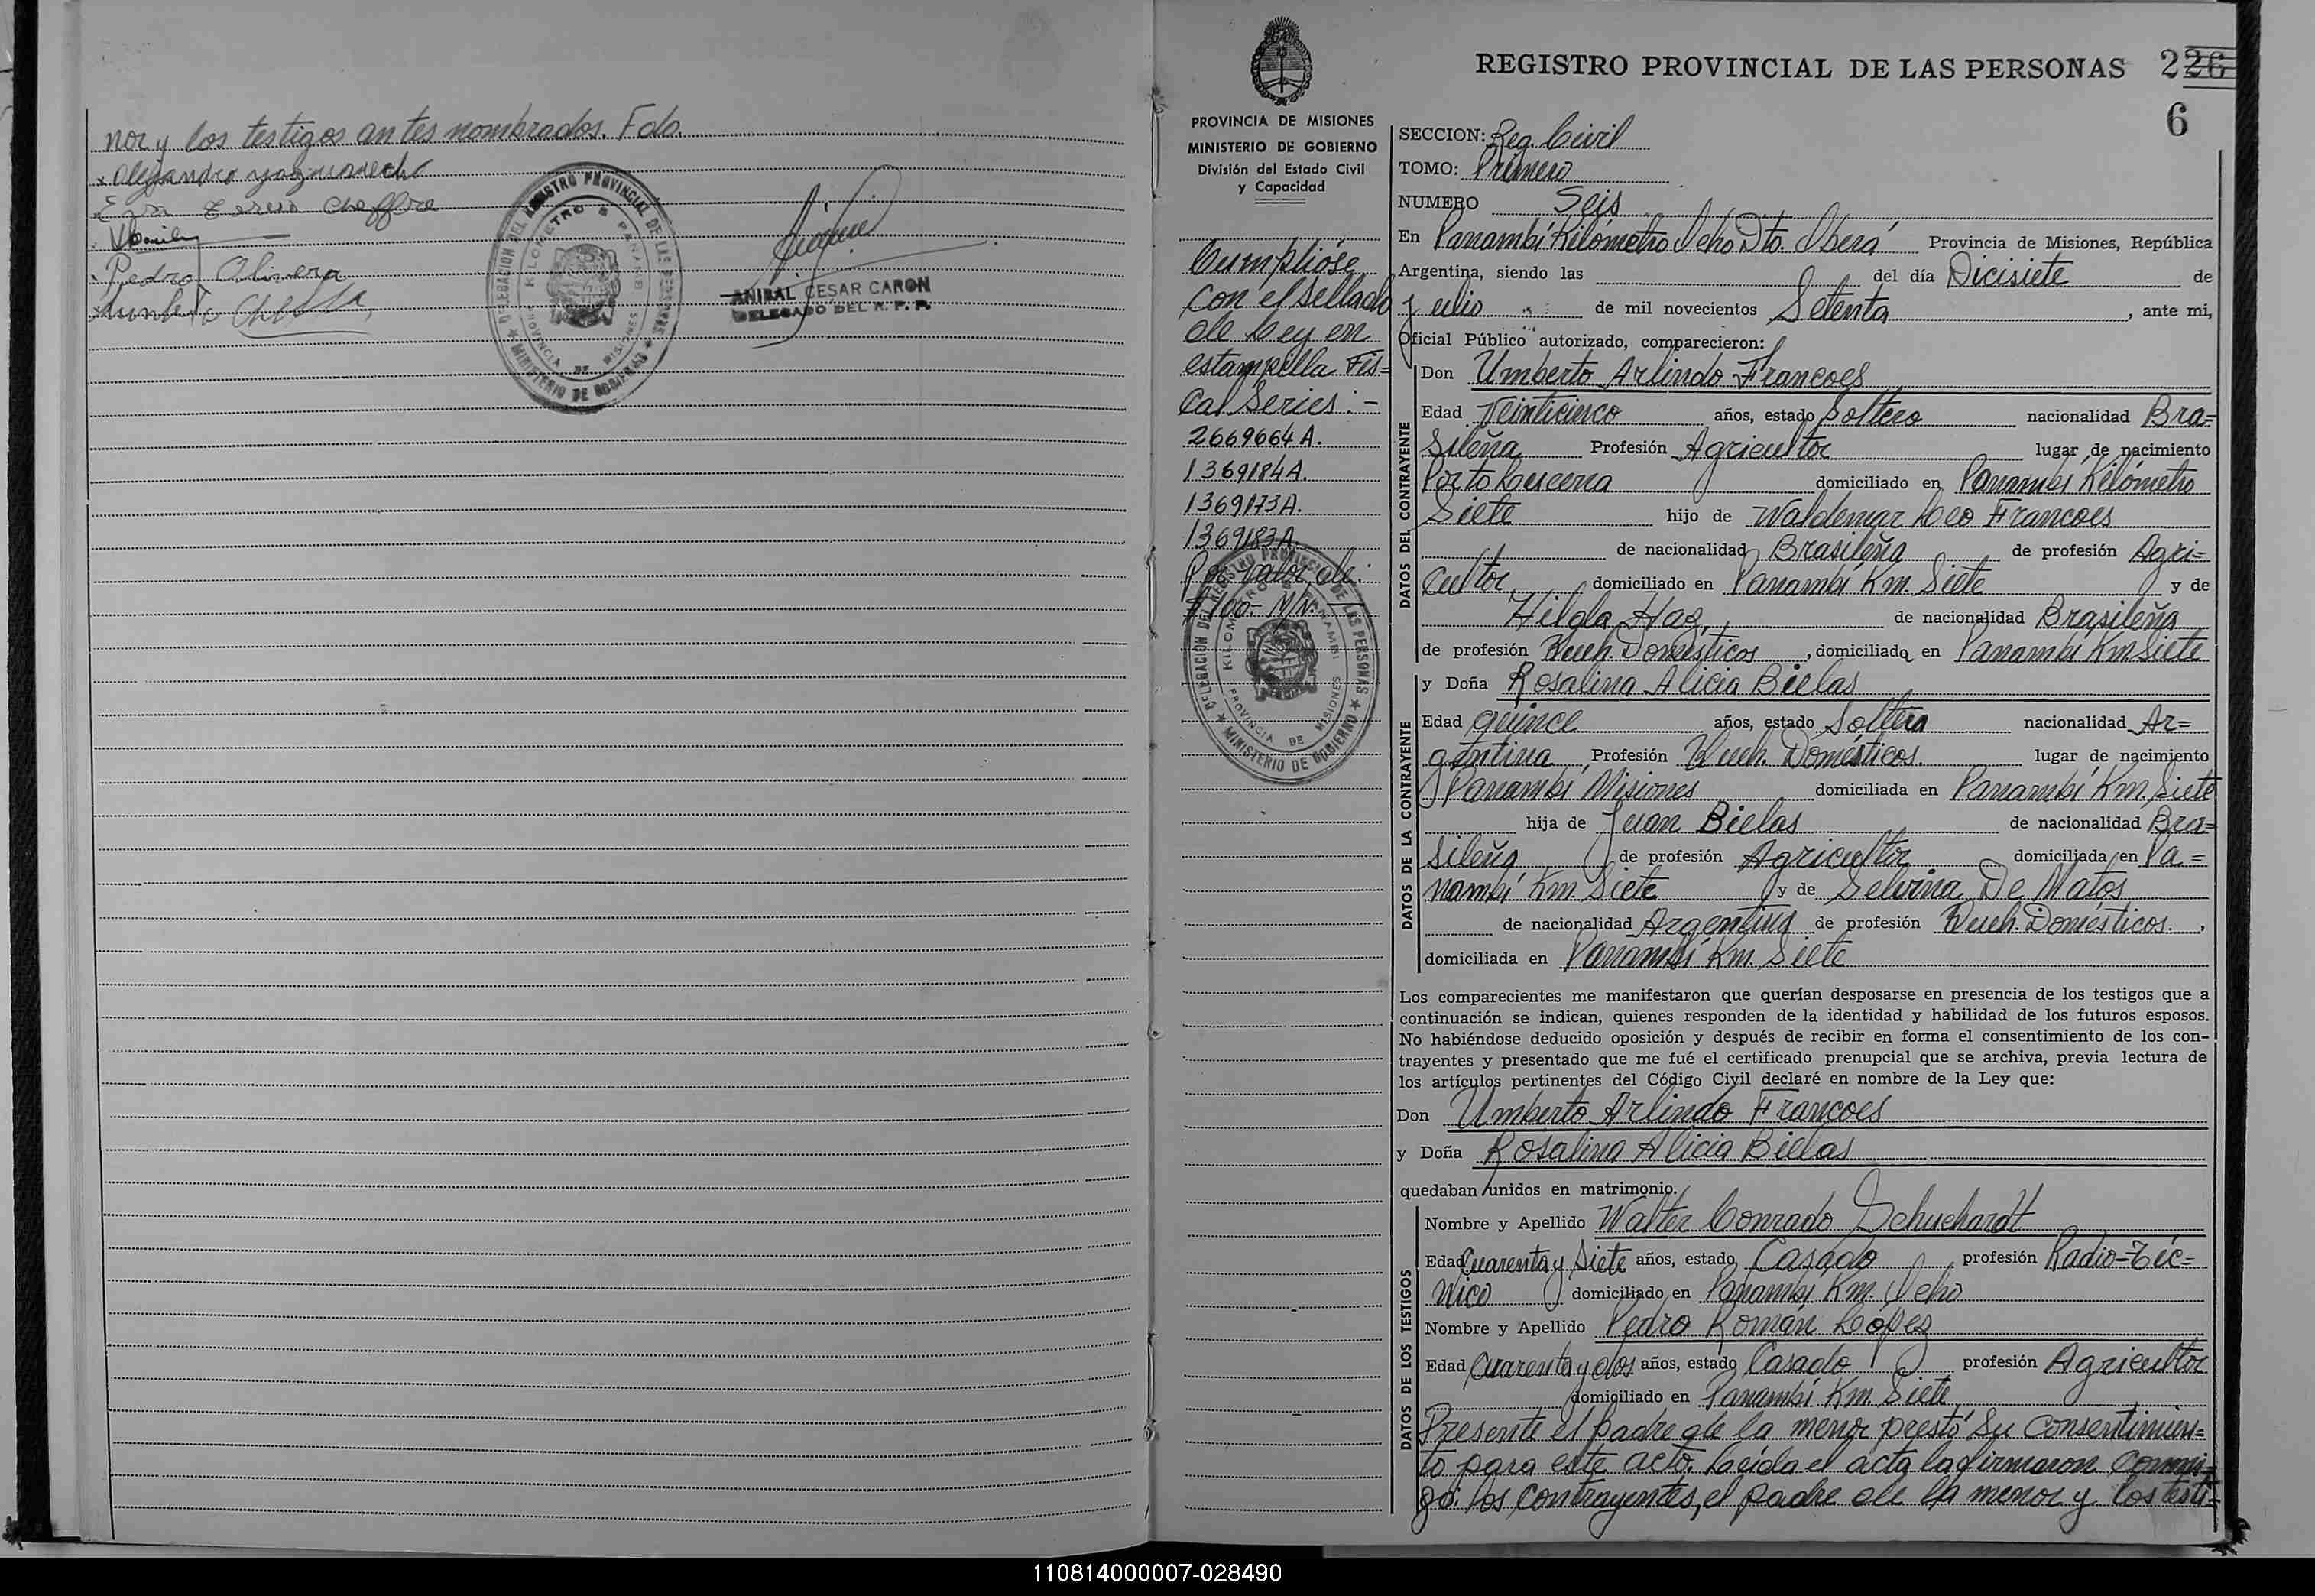 nor y los testigos antes nombrados. Fdo.
Pedro Olivera
DELEGACION DEL REGISTRO PROVINCIAL DE LAS PERSONAS
KILOMETRO 8 PANAMBI
PROVINCIA DE MISIONES
MINISTERIO DE GOBIERNO
ANIBAL CESAR CARON
DELEGADO DEL R. P. P.
PROVINCIA DE MISIONES
MINISTERIO DE GOBIERNO
División del Estado Civil
y Capacidad
Cumplióse
con el sellado
de Ley en
estampilla Fis=
cal Series:-
2669664 A.
1369184 A.
1369173 A.
1369183 A.
Por valor de:
$ 100.- M/N.
DELEGACION DEL REGISTRO PROVINCIAL DE LAS PERSONAS
KILOMETRO 8 PANAMBI
PROVINCIA DE MISIONES
MINISTERIO DE GOBIERNO
REGISTRO PROVINCIAL DE LAS PERSONAS 226
6
SECCION: Reg. Civil
TOMO: Primero
NUMERO Seis
En Panambí Kilómetro Ocho Dto. Oberá Provincia de Misiones, República
Argentina, siendo las del día Dicisiete de
Julio de mil novecientos Setenta, ante mi,
Oficial Público autorizado, comparecieron:
DATOS DEL CONTRAYENTE
Don Umberto Arlindo Francoes
Edad Veinticinco años, estado Soltero nacionalidad Bra=
sileña Profesión Agricultor lugar de nacimiento
Porto Lucena domiciliado en Panambí Kilómetro
Siete hijo de Waldemar Leo Francoes
de nacionalidad Brasileña de profesión Agri=
cultor domiciliado en Panambí Km. Siete y de
Hilda Haz, de nacionalidad Brasileña
de profesión Queh. Domésticos, domiciliada en Panambí Km Siete
y Doña Rosalina Alicia Bielas
DATOS DE LA CONTRAYENTE
Edad quince años, estado Soltera nacionalidad Ar=
gentina Profesión Queh. Domésticos. lugar de nacimiento
Panambí Misiones domiciliada en Panambí Km. Siete
hija de Juan Bielas de nacionalidad Bra=
sileña de profesión Agricultor domiciliada en Pa=
nambí Km. Siete y de Selvina De Matos
de nacionalidad Argentina de profesión Queh. Domésticos.,
domiciliada en Panambí Km. Siete
Los comparecientes me manifestaron que querían desposarse en presencia de los testigos que a
continuación se indican, quienes responden de la identidad y habilidad de los futuros esposos.
No habiéndose deducido oposición y después de recibir en forma el consentimiento de los con-
trayentes y presentado que me fué el certificado prenupcial que se archiva, previa lectura de
los artículos pertinentes del Código Civil declaré en nombre de la Ley que:
Don Umberto Arlindo Francoes
y Doña Rosalina Alicia Bielas
quedaban unidos en matrimonio.
DATOS DE LOS TESTIGOS
Nombre y Apellido Walter Conrado Schuchardt
Edad Cuarenta y Siete años, estado Casado profesión Radio-Téc=
nico domiciliado en Panambí Km. Ocho
Nombre y Apellido Pedro Román López
Edad Cuarenta y dos años, estado Casado profesión Agricultor
domiciliado en Panambí Km. Siete
Presente el padre de la menor prestó su consentimien=
to para este acto. Leída el acta la firmaron conmi=
go los contrayentes, el padre de la menor y los testi=
110814000007-028490